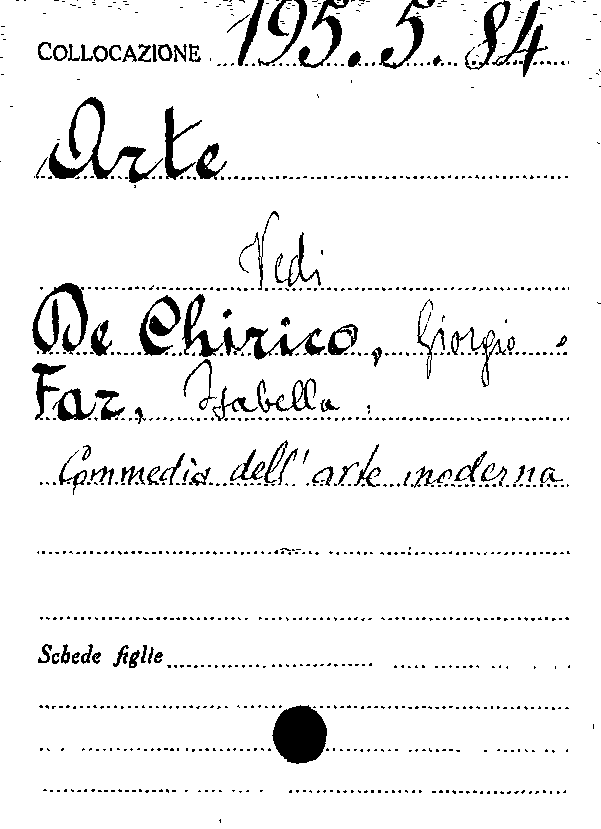 COLLOCAZIONE 195.5.84
Arte
Vedi
De Chirico, Giorgio e
Far, Isabella.
Commedia dell'arte moderna
Schede figlie